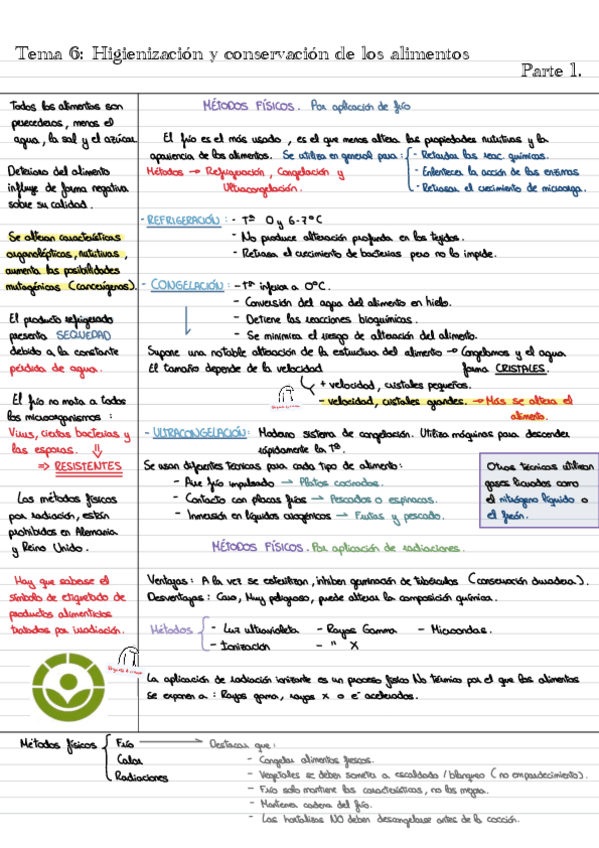 Tema 6: Higienización y conservación de los alimentos
Parte 1.
Todos los alimentos son
perecederos, menos el
agua, la sal y el azúcar.
Deterioro del alimento
influye de forma negativa
sobre su calidad.
Se alteran características
organolépticas, nutritivas,
aumenta las posibilidades
mutagénicas (cancerígenos).
El producto refrigerado
presenta SEQUEDAD
debido a la constante
pérdida de agua.
El frío no mata a todos
los microorganismos :
Virus, ciertas bacterias y
las esporas.
⇒ RESISTENTES
Los métodos físicos
por radiación, están
prohibidos en Alemania
y Reino Unido.
Hay que saberse el
símbolo de etiquetado de
productos alimenticios
tratados por irradiación.
MÉTODOS FÍSICOS. Por aplicación de frío
El frío es el más usado, es el que menos altera las propiedades nutritivas y la
apariencia de los alimentos. Se utiliza en general para : - Retardar las reac. químicas.
- Enlentecer la acción de las enzimas
- Retrasar el crecimiento de microorga.
Métodos → Refrigeración, Congelación y
Ultracongelación.
- REFRIGERACIÓN : - Tª 0 y 6-7ºC
- No produce alteración profunda en los tejidos.
- Retrasa el crecimiento de bacterias pero no lo impide.
- CONGELACIÓN : - Tª inferior a 0ºC.
- Conversión del agua del alimento en hielo.
- Detiene las reacciones bioquímicas.
- Se minimiza el riesgo de alteración del alimento.
Supone una notable alteración de la estructura del alimento → Congelamos y el agua
forma CRISTALES.
El tamaño depende de la velocidad
+ velocidad, cristales pequeños.
- velocidad, cristales grandes. → Más se altera el
alimento.
- ULTRACONGELACIÓN : Moderno sistema de congelación. Utiliza máquinas para descender
rápidamente la Tª.
Se usan diferentes técnicas para cada tipo de alimento :
- Aire frío impulsado → Platos cocinados.
- Contacto con placas frías → Pescados o espinacas.
- Inmersión en líquidos criogénicos → Frutas y pescado.
Otras técnicas utilizan
gases licuados como
el nitrógeno líquido o
el freón.
MÉTODOS FÍSICOS. Por aplicación de radiaciones.
Ventajas : A la vez se esterilizan, inhiben germinación de tubérculos (conservación duradera).
Desventajas : Caro, Muy peligroso, puede alterar la composición química.
Métodos
- Luz ultravioleta - Rayos Gamma - Microondas.
- Ionización - " X
La aplicación de radiación ionizante es un proceso físico No térmico por el que los alimentos
se exponen a : Rayos gama, rayos x o e⁻ acelerados.
Métodos físicos
Frío → Destacar que :
Calor
Radiaciones
- Congelar alimentos frescos.
- Vegetales se deben someter a escaldado / blanqueo (no empardecimiento).
- Frío solo mantiene las características, no las mejora.
- Mantener cadena del frío.
- Las hortalizas NO deben descongelarse antes de la cocción.